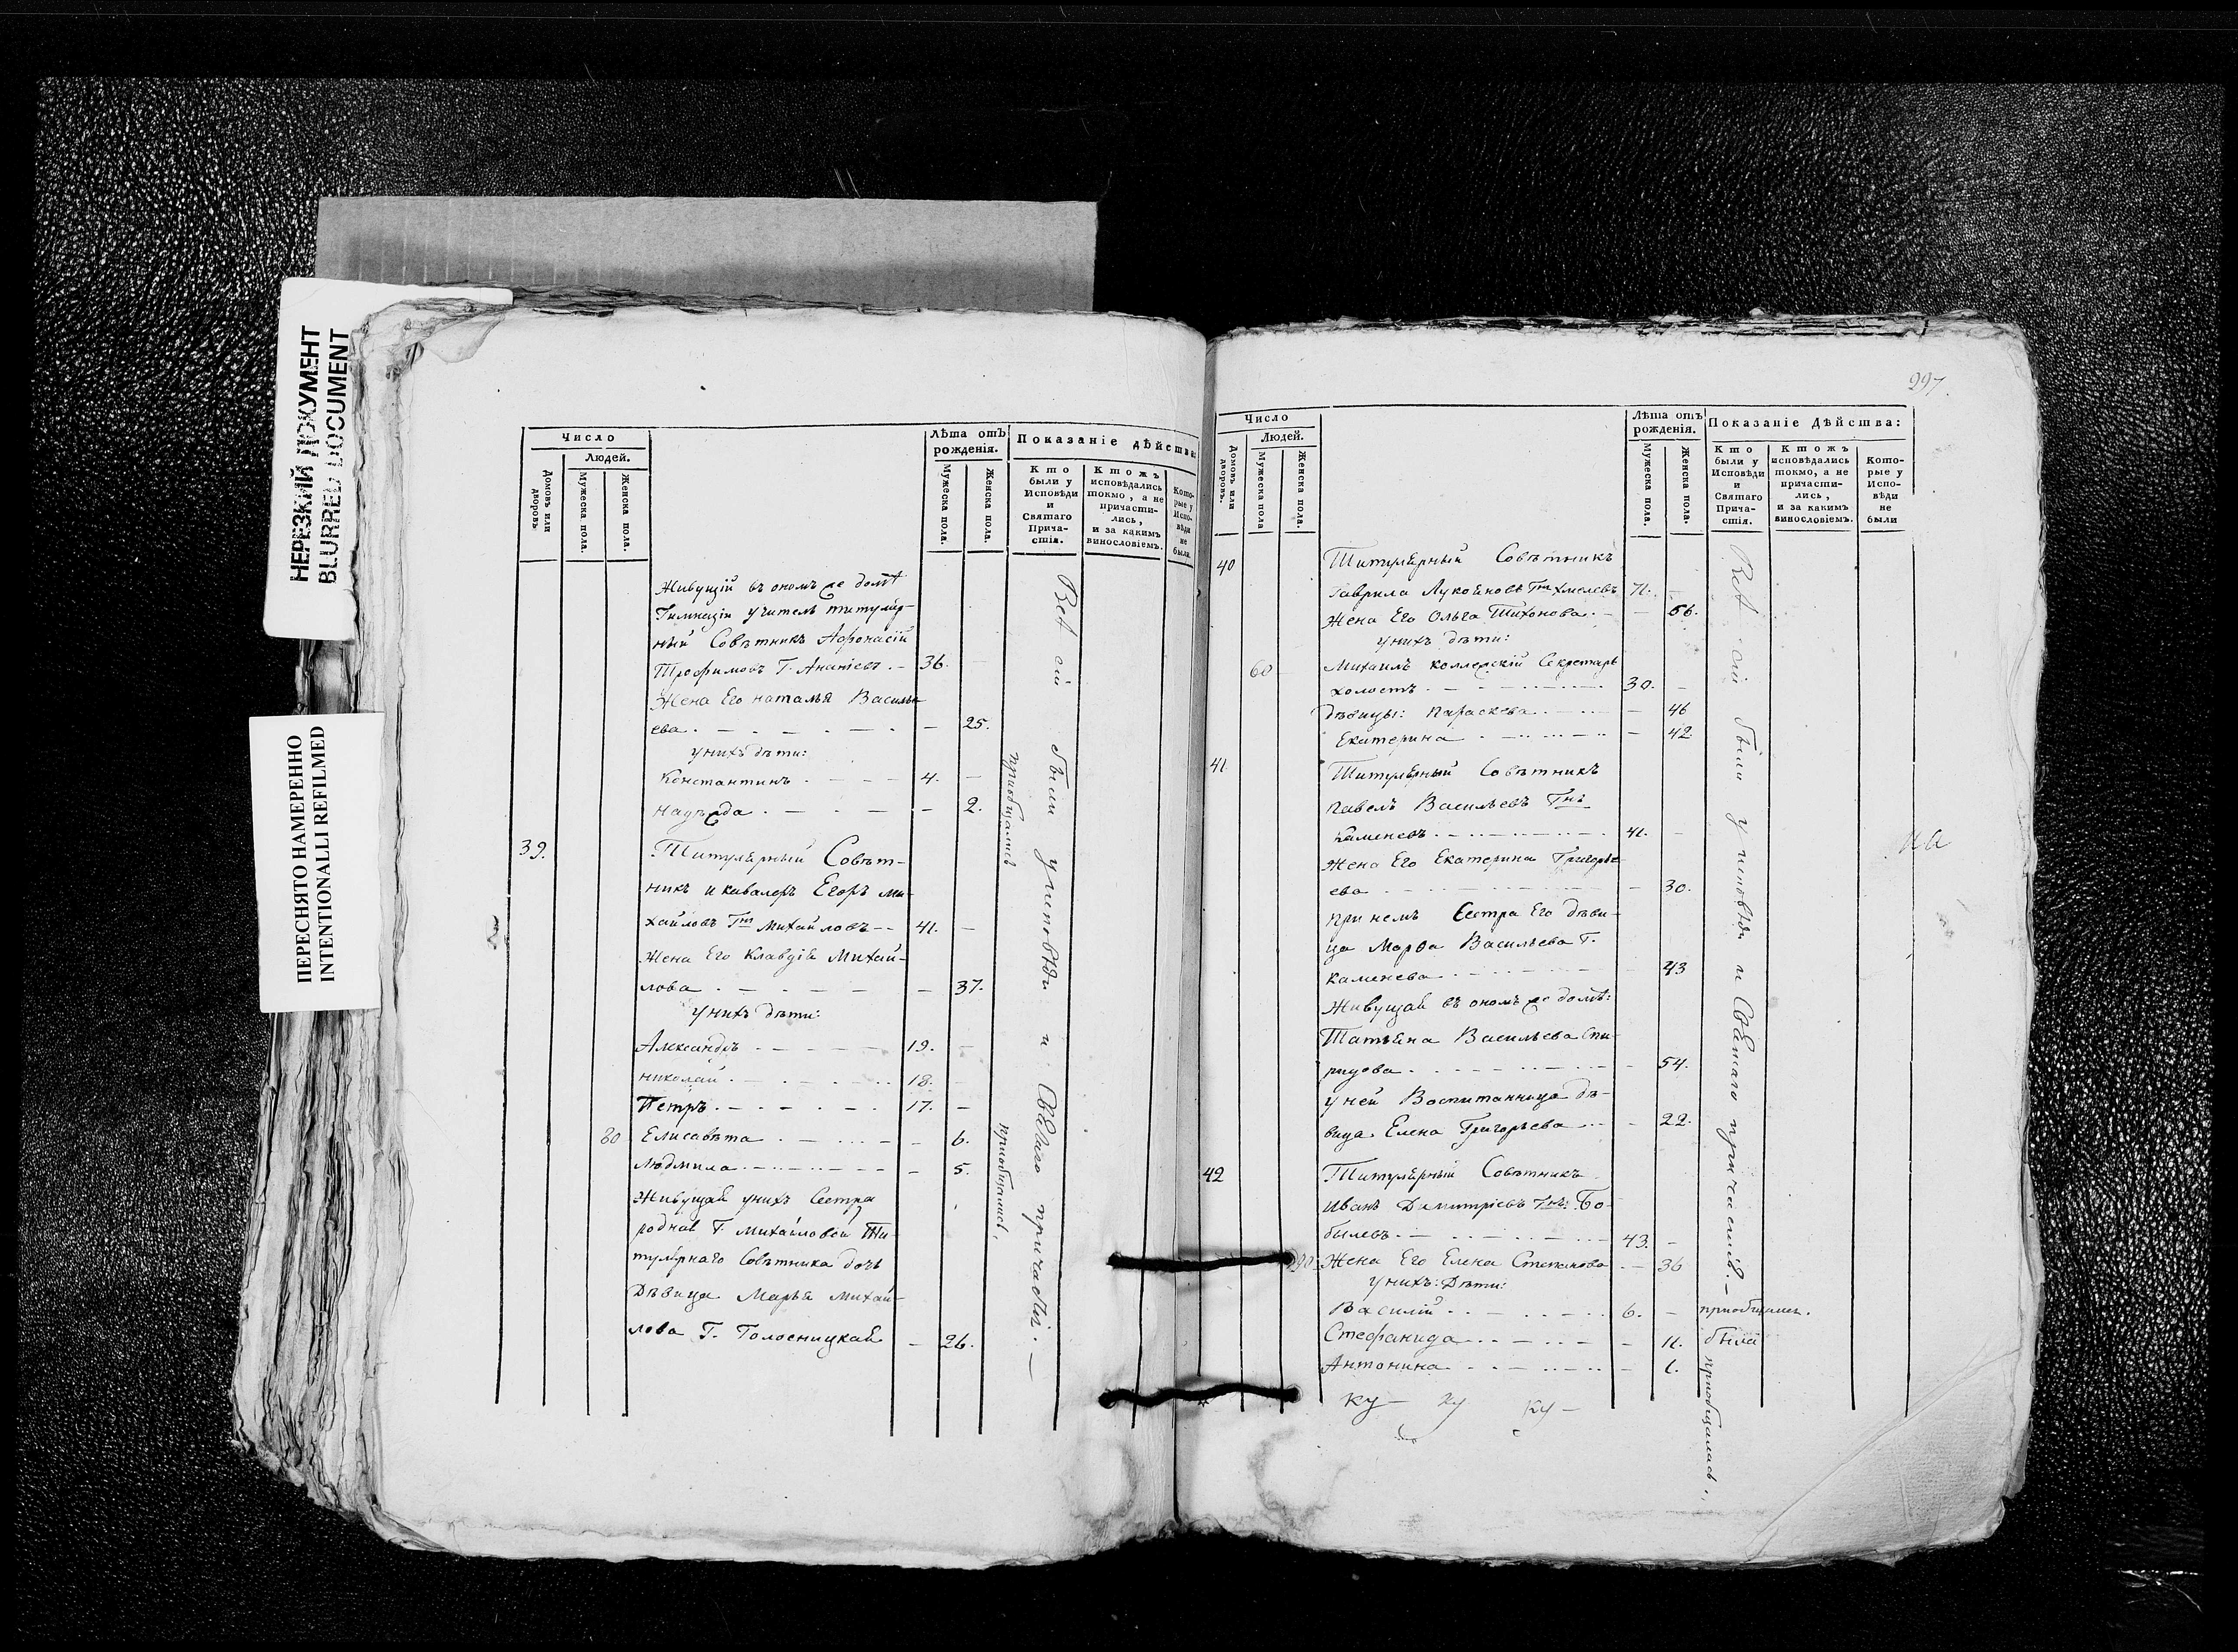 НЕРЕЗКИЙ ДОКУМЕНТ
BLURRED DOCUMENT
ПЕРЕСНЯТО НАМЕРЕННО
INTENTIONALLI REFILMED
Число
Людей.
Домовъ или дворовъ.
Мужеска пола.
Женска пола.
Лѣта отъ рожденія.
Мужеска пола.
Женска пола.
Показаніе дѣйства:
Кто были у Исповѣди и Святаго Причастія.
Ктожъ исповѣдались токмо, а не причастились, и за какимъ винословіемъ.
Которые у Исповѣди не были.
Живущій въ ономъ же домѣ
Гимназіи учитель титуляр-
ный Совѣтникъ Афонасій
Трофимовъ Г. Ананіевъ . – 36. –
Жена Его наталья Василь-
ева . – . – . – . – 25.
у нихъ дѣти:
Константинъ . – – – 4. –
надежда . – . – – 2.
39. Титулярный Совѣт-
никъ и кавалеръ Егоръ ми-
хайловъ Гнъ михайловъ – – 41. –
Жена Его Клавдія михай-
лова . – – – – – 37.
у нихъ дѣти:
Александръ . – – – 19. –
николай . – . – . 18. –
Петръ . – . – . – 17. –
80 Елисавѣта . – . – – 6.
людмила . – . – – – 5.
Живущая у нихъ Сестра
родная Г. михайловой Ти-
тулярнаго Совѣтника дочь
Дѣвица Марья михай-
лова Г. Голосницкая – 26.
Всѣ сіи были у исповѣди и Святаго причастія. –
приобщались
приобщались
297.
Число
Людей.
Домовъ или дворовъ.
Мужеска пола
Женска пола.
Лѣта отъ рожденія.
Мужеска пола.
Женска пола.
Показаніе Дѣйства:
Кто были у Исповѣди и Святаго Причастія.
Ктожъ исповѣдались токмо, а не причастились, и за какимъ винословіемъ.
Которые у Исповѣди не были
40 Титулярный Совѣтникъ
Гаврила Лукойновъ Гнъ Хмелевъ 71. –
Жена Его Ольга Тихонова . – – 56.
у нихъ дѣти:
60 михаилъ коллежскій Секретарь
холостъ . – – – 30. –
дѣвицы: параскева . – – – 46
Екатерина . – – – 42.
41. Титулярный Совѣтникъ
павелъ Васильевъ Гнъ
Каменевъ . – – – 41. –
Жена Его Екатерина Григорь-
ева – – – 30.
при немъ Сестра Его дѣви-
ца Марфа Васильева Г.
каменева . – – – 43
Живущая въ ономъ же домѣ:
Татьяна Васильева Спи-
ридова . – – – 54.
у ней Воспитанница дѣ-
вица Елена Григорьева – – 22.
42 Титулярный Совѣтникъ
иванъ Димитріевъ Гнъ: Бо-
былевъ . – – – 43. –
90. Жена Его Елена Степанова . – 36
у нихъ: Дѣти:
Василій . . – – – 6. – приобщался.
Стефанида . – – – 11. была
Антонина . – – – 1.
приобщалась.
Всѣ сіи были у исповѣди и Святаго причастія. –
ку – ку ку –
на